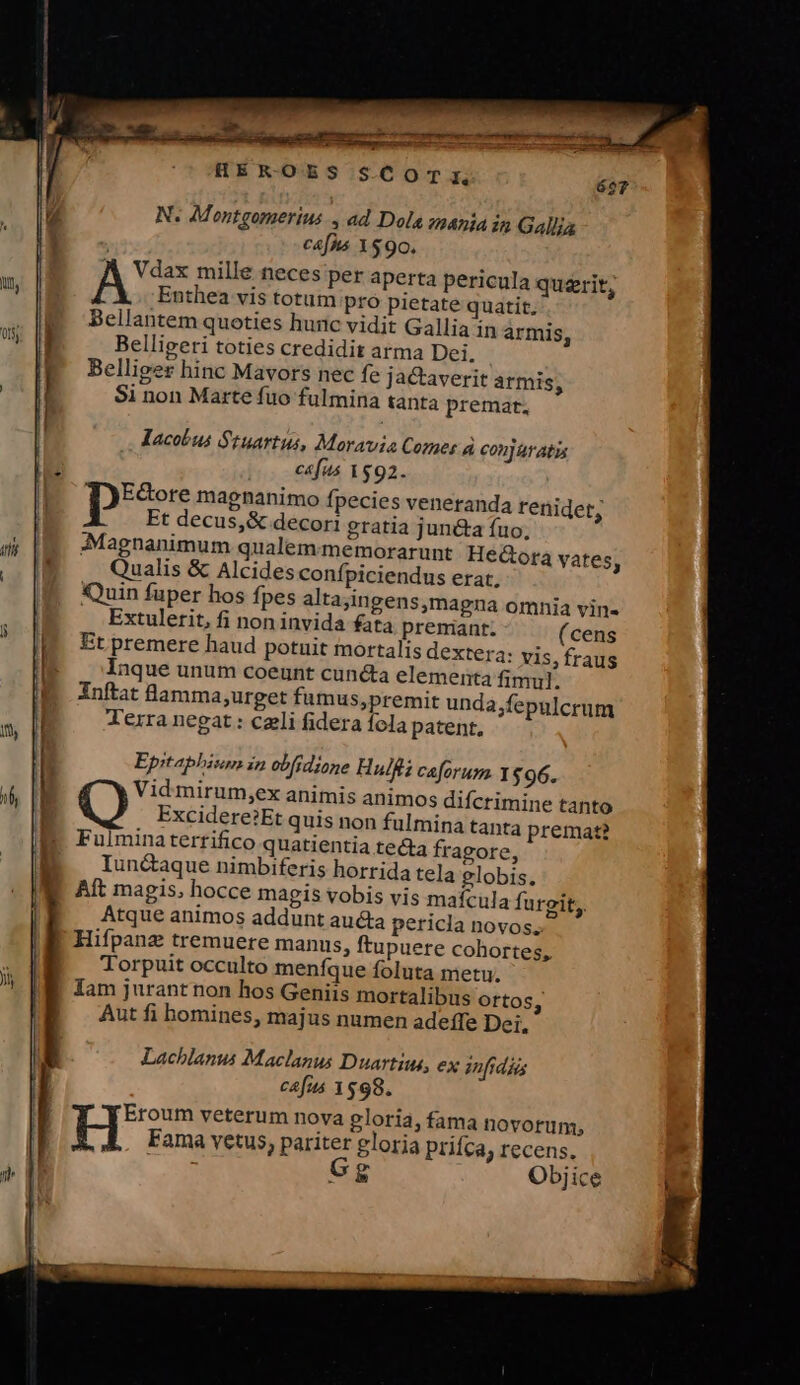 HEROES SCOTI.
N. Montgomerius, ad Dolæ mænia in Gallia
cæſus 1590.
AVdax mille neces per aperta pericula quærit,
Enthea vis totum pro pietate quatit.
Bellantem quoties hunc vidit Gallia in armis,
Belligeri toties credidit arma Dei.
Belliger hinc Mavors nec ſe jactaverit armis,
Si non Marte ſuo fulmina tanta premat.
Iacobus Stuartus, Moraviæ Comes à conjuratis
cæſus 1592.
PEctore magnanimo ſpecies veneranda renidet,
Et decus, & decori gratia juncta ſuo.
Magnanimum qualem memorarunt Hectora vates,
Qualis & Alcides conſpiciendus erat.
Quin ſuper hos ſpes alta, ingens, magna omnia vin-
Extulerit, ſi non invida fata premant. (cens
Et premere haud potuit mortalis dextera: vis, fraus
Inque unum coeunt cuncta elementa ſimul.
Inſtat flamma, urget fumus, premit unda, ſepulcrum
Terra negat: cæli ſidera ſola patent.
Epitaphium in obſidione Hulſti cæſorum 1596.
QVid mirum, ex animis animos diſcrimine tanto
Excidere? Et quis non fulmina tanta premat?
Fulmina terrifico quatientia tecta fragore,
Iunctaque nimbiferis horrida tela globis.
Aſt magis, hocce magis vobis vis maſcula ſurgit,
Atque animos addunt aucta pericla novos.
Hiſpanæ tremuere manus, ſtupuere cohortes,
Torpuit occulto menſque ſoluta metu.
Iam jurant non hos Geniis mortalibus ortos,
Aut ſi homines, majus numen adeſſe Dei.
Lachlanus Maclanus Duartius, ex inſidiis
cæſus 1598.
HEroum veterum nova gloria, fama novorum,
Fama vetus, pariter gloria priſca, recens.
Gg Objice